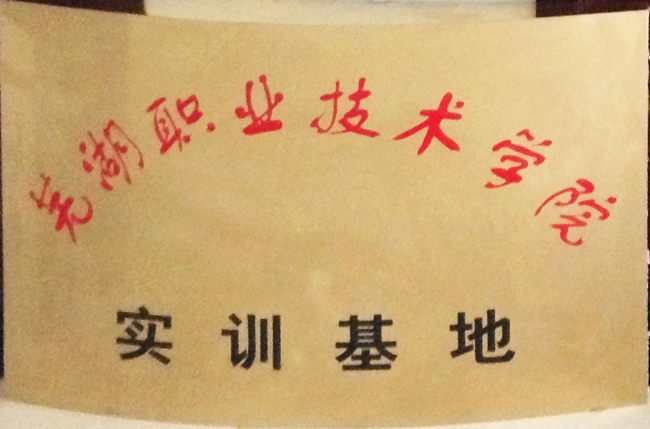 芜湖职业技术学院
实训基地